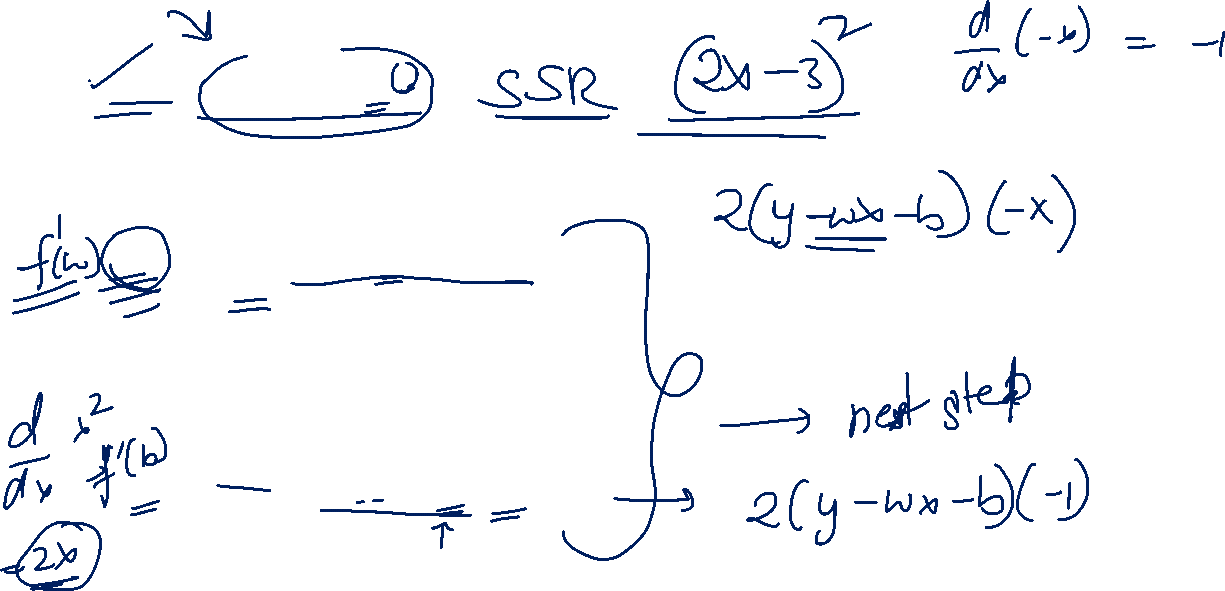 0 SSR (2x-3)² d/dx (-x) = -1
2(y-wx-b)(-x)
f'(w) =
d/dx x² f'(b)
= 2x
→ next step
→ 2(y-wx-b)(-1)